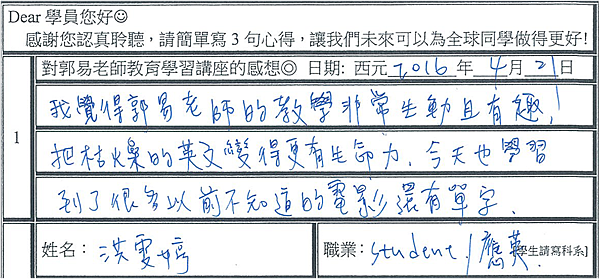 Dear 學員您好☺
感謝您認真聆聽，請簡單寫 3 句心得，讓我們未來可以為全球同學做得更好!
對郭易老師教育學習講座的感想◎ 日期: 西元 2016 年 4 月 21 日
1
我覺得郭易老師的教學非常生動且有趣!
把枯燥的英文變得更有生命力. 今天也學習
到了很多以前不知道的電影還有單字.
姓名: 洪雯婷 職業: student / 應英 [學生請寫科系]